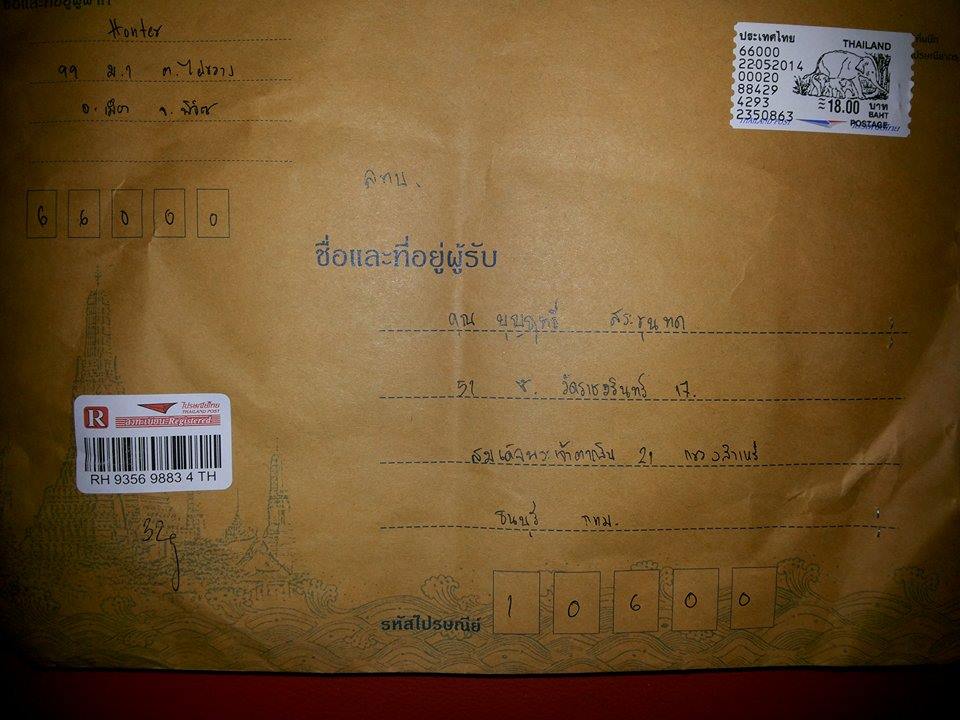 ชื่อและที่อยู่ผู้ฝาก
Honter
99 ม.1 ต.ไผ่ขวาง
อ.เมือง จ.พิจิตร
66000
ประเทศไทย THAILAND
66000
22052014
00020
88429
4293 18.00 บาท
BAHT
2350863 POSTAGE
THAILAND POST
ชื่อและที่อยู่ผู้รับ
คุณ บุญฤทธิ์ สระขุนทด
51 ซ. วัดราชวรินทร์ 17.
สมเด็จพระเจ้าตากสิน 21 แขวงสำเหร่
ธนบุรี กทม.
R ไปรษณีย์ไทย
THAILAND POST
ลงทะเบียน-Registered
RH 9356 9883 4 TH
32g
รหัสไปรษณีย์ 10600